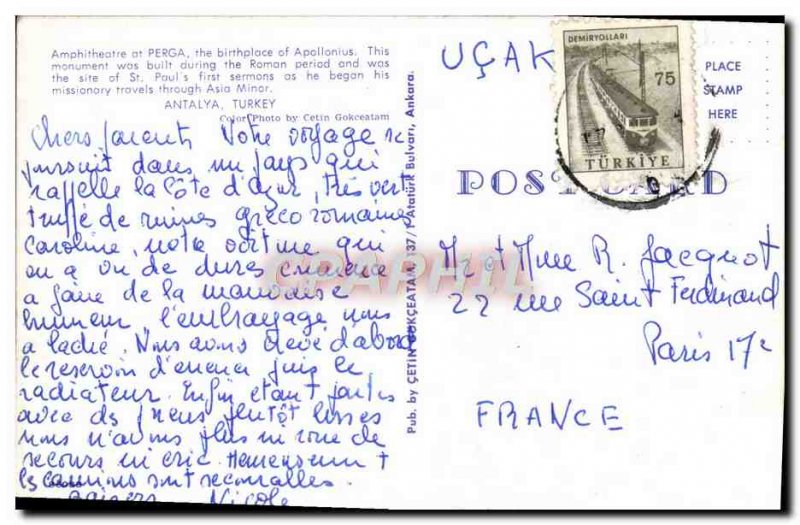 Amphitheatre at PERGA, the birthplace of Apollonius. This
monument was built during the Roman period and was
the site of St. Paul's first sermons as he began his
missionary travels through Asia Minor.
ANTALYA, TURKEY
Color Photo by Cetin Gokceatam
Chers parents Votre voyage se
poursuit dans un pays qui
rappelle la Côte d'Azur, très vert
truffé de ruines gréco romaines
Caroline, notre voiture qui
en a vu de dures commence
a faire de la mauvaise
humeur, l'embrayage nous
a laché. Nous avons crevé d'abord
le reservoir d'essence puis le
radiateur. Enfin étant partis
avec des pneus plutôt lisses
nous n'avons plus ni roue de
secours ni cric. Heureusement
les camions sont secourables.
Baisers Nicole
Pub. by ÇETİN GÖKÇEATAM, 137/1 Atatürk Bulvarı, Ankara.
CPAPHIL
UÇAK
DEMİRYOLLARI
75
TÜRKİYE
PLACE
STAMP
HERE
POST CARD
Mr et Mme R. Jacquot
22 rue Saint Ferdinand
Paris 17e
FRANCE